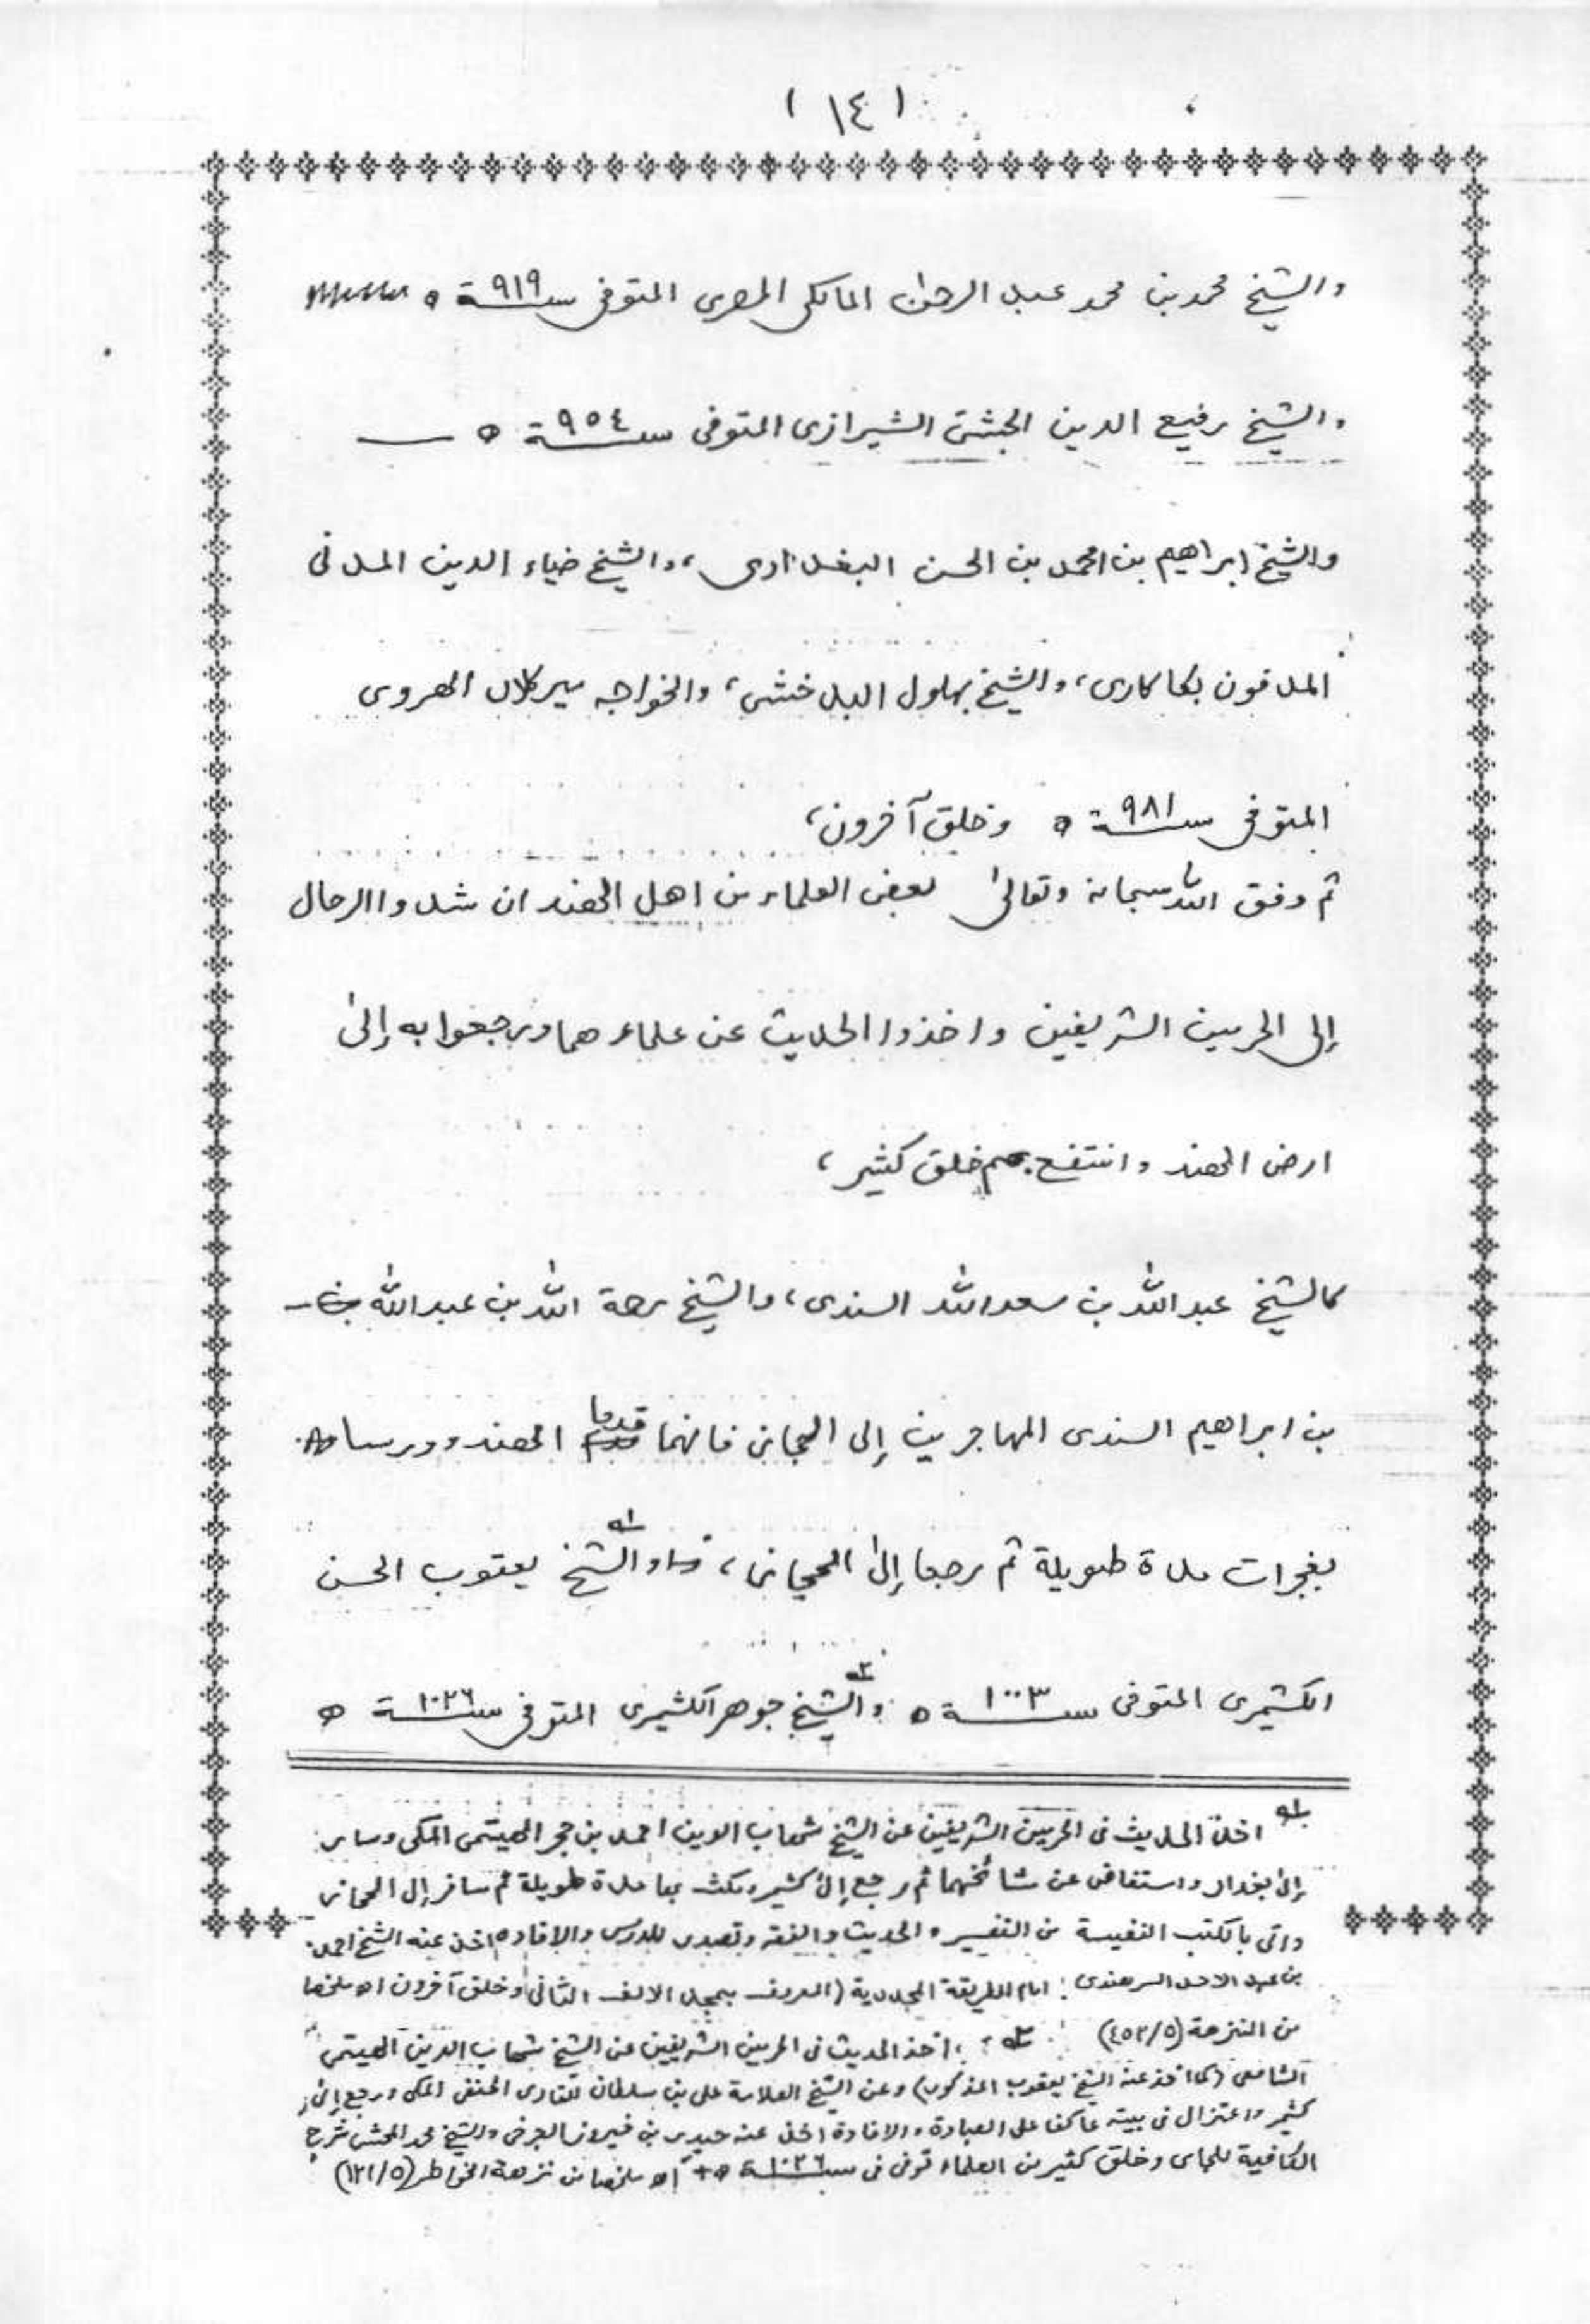 ( ١٤ )
والشيخ محمد بن محمد عبد الرحمن المالكي المصري المتوفى سنة ٩١٩ ه
والشيخ رفيع الدين الجشتى الشيرازى المتوفى سنة ٩٥٤ ه
والشيخ ابراهيم بن احمد بن الحسن البغدادى، والشيخ ضياء الدين المدنى
المدفون بكاكورى، والشيخ بهلول البدخشى، والخواجه مير كلان الهروى
المتوفى سنة ٩٨١ ه وخلق آخرون،
ثم وفق الله سبحانه وتعالىٰ بعض العلماء من اهل الهند ان شدوا الرحال
إلى الحرمين الشريفين واخذوا الحديث عن علماءهما ورجعوا به إلىٰ
ارض الهند وانتفع بهم خلق كثير،
كالشيخ عبد الله بن سعد الله السندى، والشيخ رحمة الله بن عبد الله
بن ابراهيم السندى المهاجرين إلى الحجاز فانهما قدما الهند ودرسا
بغجرات مدة طويلة ثم رجعا إلىٰ الحجاز، والشيخ ١ يعقوب الحسن
الكشميرى المتوفى سنة ١٠٠٣ ه والشيخ ٢ جوهر الكشميرى المتوفى سنة ١٠٢٦ ه
١ اخذ الحديث فى الحرمين الشريفين عن الشيخ شهاب الدين احمد بن حجر الهيتمى المكى وسافر
إلىٰ بغداد واستفاض عن مشائخهما ثم رجع إلىٰ كشمير ومكث بها مدة طويلة ثم سافر إلى الحجاز
واتى بالكتب النفيسة من التفسير والحديث والفقه وتصدر للدرس والإفادة اخذ عنه الشيخ احمد
بن عبد الاحد السرهندى: امام الطريقة المجددية (المعروف بمجدد الالف الثانى) وخلق آخرون اه ملخصا
من النزهة (٤٥٢/٥) ٢ اخذ الحديث فى الحرمين الشريفين عن الشيخ شهاب الدين الهيتمى
الشافعى (كما اخذ عنه الشيخ يعقوب المذكور) وعن الشيخ العلامة على بن سلطان القارى الحنفى المكى ورجع إلىٰ
كشمير واعتزل فى بيته عاكفا على العبادة والافادة اخذ عنه حيدر بن فيروز والشيخ محمد المحشى شرح
الكافية للجامى وخلق كثير من العلماء توفى فى سنة ١٠٢٦ ه اه ملخصا من نزهة الخواطر (١٢١/٥)